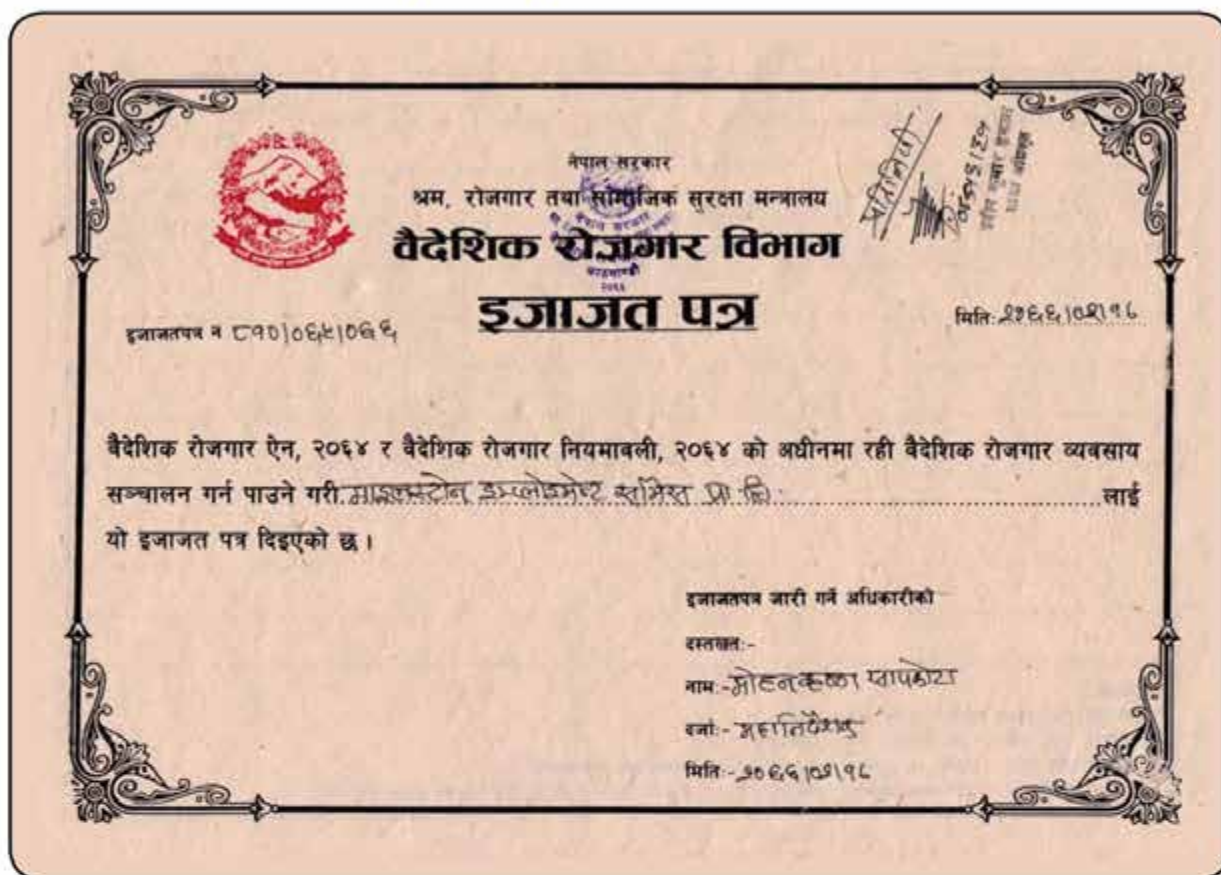 नेपाल सरकार
श्रम, रोजगार तथा सामाजिक सुरक्षा मन्त्रालय
वैदेशिक रोजगार विभाग
इजाजत पत्र
प्रतिलिपी
नेपाल सरकार
काठमाण्डौ
इजाजतपत्र नं ८१०/०६५/०६६
मिति: २०६६/०२/१८
वैदेशिक रोजगार ऐन, २०६४ र वैदेशिक रोजगार नियमावली, २०६४ को अधीनमा रही वैदेशिक रोजगार व्यवसाय
सञ्चालन गर्न पाउने गरी माइलस्टोन इम्प्लोइमेन्ट सर्भिस प्रा लि लाई
यो इजाजत पत्र दिइएको छ ।
इजाजतपत्र जारी गर्ने अधिकारीको
दस्तखत:-
नाम:- मोहनकृष्ण सापकोटा
दर्जा:- महानिर्देशक
मिति:- २०६६/०२/१८